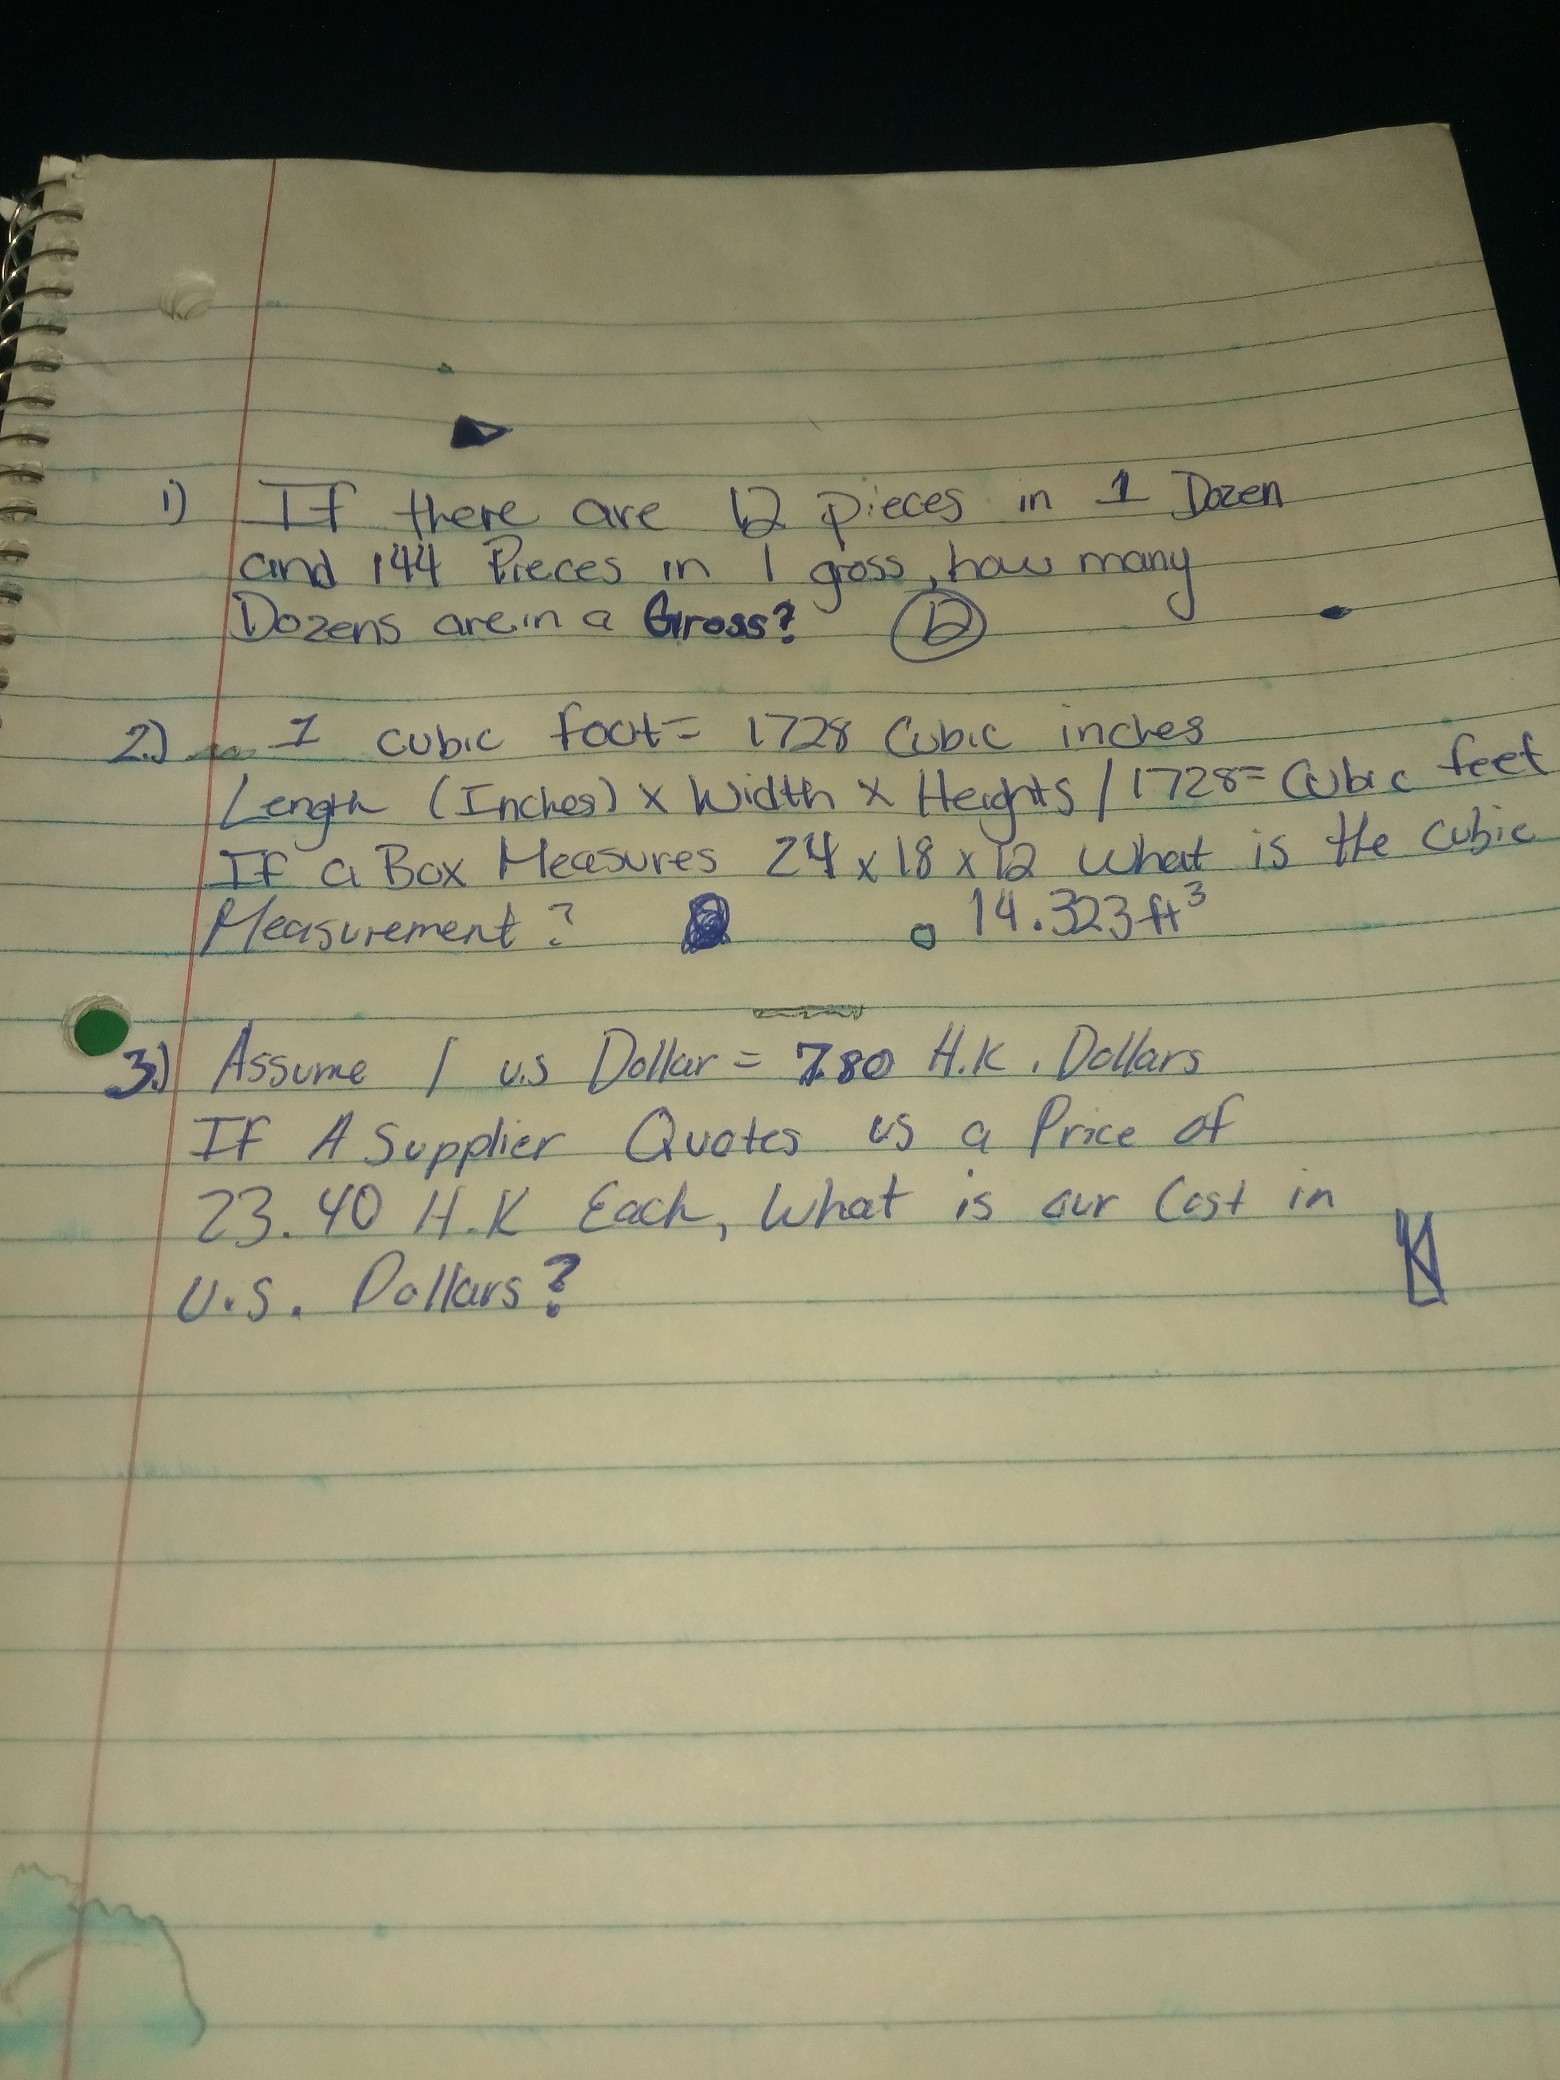 1) If there are 12 pieces in 1 Dozen
and 144 Pieces in 1 gross, how many
Dozens are in a Gross? 12
2.) 1 cubic foot = 1728 Cubic inches
Length (Inches) x Width x Heights / 1728 = Cubic feet
If a Box Measures 24 x 18 x 12 What is the cubic
Measurement? 14.323 ft³
3.) Assume 1 U.S Dollar = 7.80 H.K. Dollars
If A Supplier Quotes us a Price of
23.40 H.K Each, What is our Cost in
U.S. Dollars?